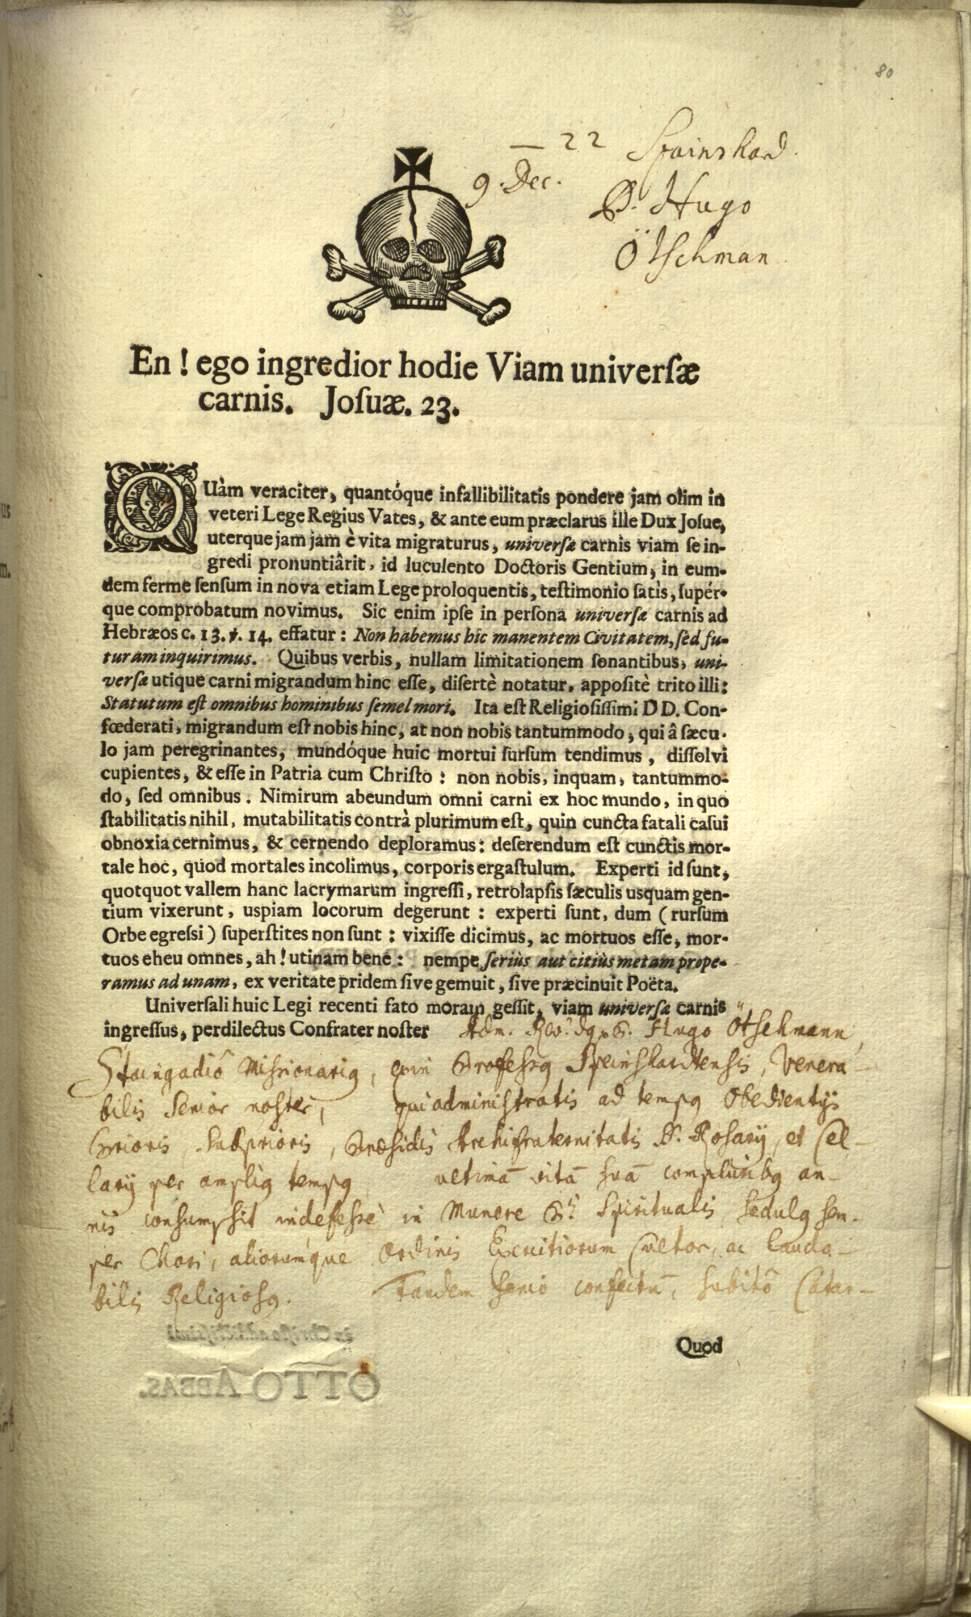 80
— 22 Spainshard.
9. Dec. P. Hugo
Ötschman.
En ! ego ingredior hodie Viam universæ
carnis. Josuæ. 23.
QUàm veraciter, quantóque infallibilitatis pondere jam olim in
veteri Lege Regius Vates, & ante eum præclarus ille Dux Josue,
uterque jam jam è vita migraturus, universæ carnis viam se in-
gredi pronuntiârit, id luculento Doctoris Gentium, in eum-
dem ferme sensum in nova etiam Lege proloquentis, testimonio satis, supér-
que comprobatum novimus. Sic enim ipse in persona universæ carnis ad
Hebræos c. 13. ℣. 14. effatur: Non habemus hic manentem Civitatem, sed fu-
turam inquirimus. Quibus verbis, nullam limitationem sonantibus, uni-
versæ utique carni migrandum hinc esse, disertè notatur, appositè trito illi:
Statutum est omnibus hominibus semel mori. Ita est Religiosissimi DD. Con-
fœderati, migrandum est nobis hinc, at non nobis tantummodo, qui â sæcu-
lo jam peregrinantes, mundóque huic mortui sursum tendimus, dissolvi
cupientes, & esse in Patria cum Christo: non nobis, inquam, tantummo-
do, sed omnibus. Nimirum abeundum omni carni ex hoc mundo, in quo
stabilitatis nihil, mutabilitatis contrà plurimum est, quin cuncta fatali casui
obnoxia cernimus, & cernendo deploramus: deserendum est cunctis mor-
tale hoc, quod mortales incolimus, corporis ergastulum. Experti id sunt,
quotquot vallem hanc lacrymarum ingressi, retrolapsis sæculis usquam gen-
tium vixerunt, uspiam locorum degerunt: experti sunt, dum (rursum
Orbe egressi) superstites non sunt: vixisse dicimus, ac mortuos esse, mor-
tuos eheu omnes, ah! utinam bene: nempe seriùs aut citiùs metam prope-
ramus ad unam, ex veritate pridem sive gemuit, sive præcinuit Poëta.
Universali huic Legi recenti fato moram gessit, viam universæ carnis
ingressus, perdilectus Confrater noster Adm. Rev. Hugo Ötschmann,
Missionarig, Professg Speinshardensis, Venera-
bilis Senior noster, qui administratis ad tempg Obedientijs
Prioris, Subprioris, Præsidis Archifraternitatis S. Rosarij, et Cel-
larij per amplig tempg ultimā vitā suā compluribg an-
nis consumpsit indefesse in Munere Spiritualis, sedulg sem-
per Chori, aliorumque Ordinis Exercitiorum Cultor, ac lauda-
bilis Religiosg. Tandem senio confectū, subitô Catar-
Quod
in Christo addictissimus
OTTO ABBAS.